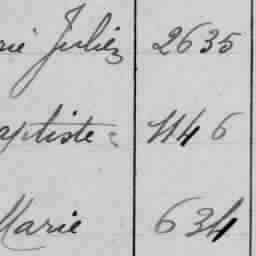 rie Julien 2635
aptiste 1146
Marie 634